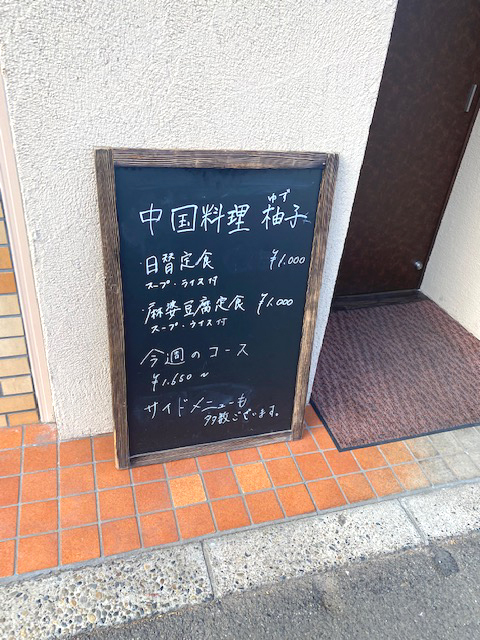 ゆず
中国料理 柚子
・日替定食 ¥1.000
スープ・ライス付
・麻婆豆腐定食 ¥1.000
スープ・ライス付
今週のコース
¥1.650〜
サイドメニューも
多数ございます。